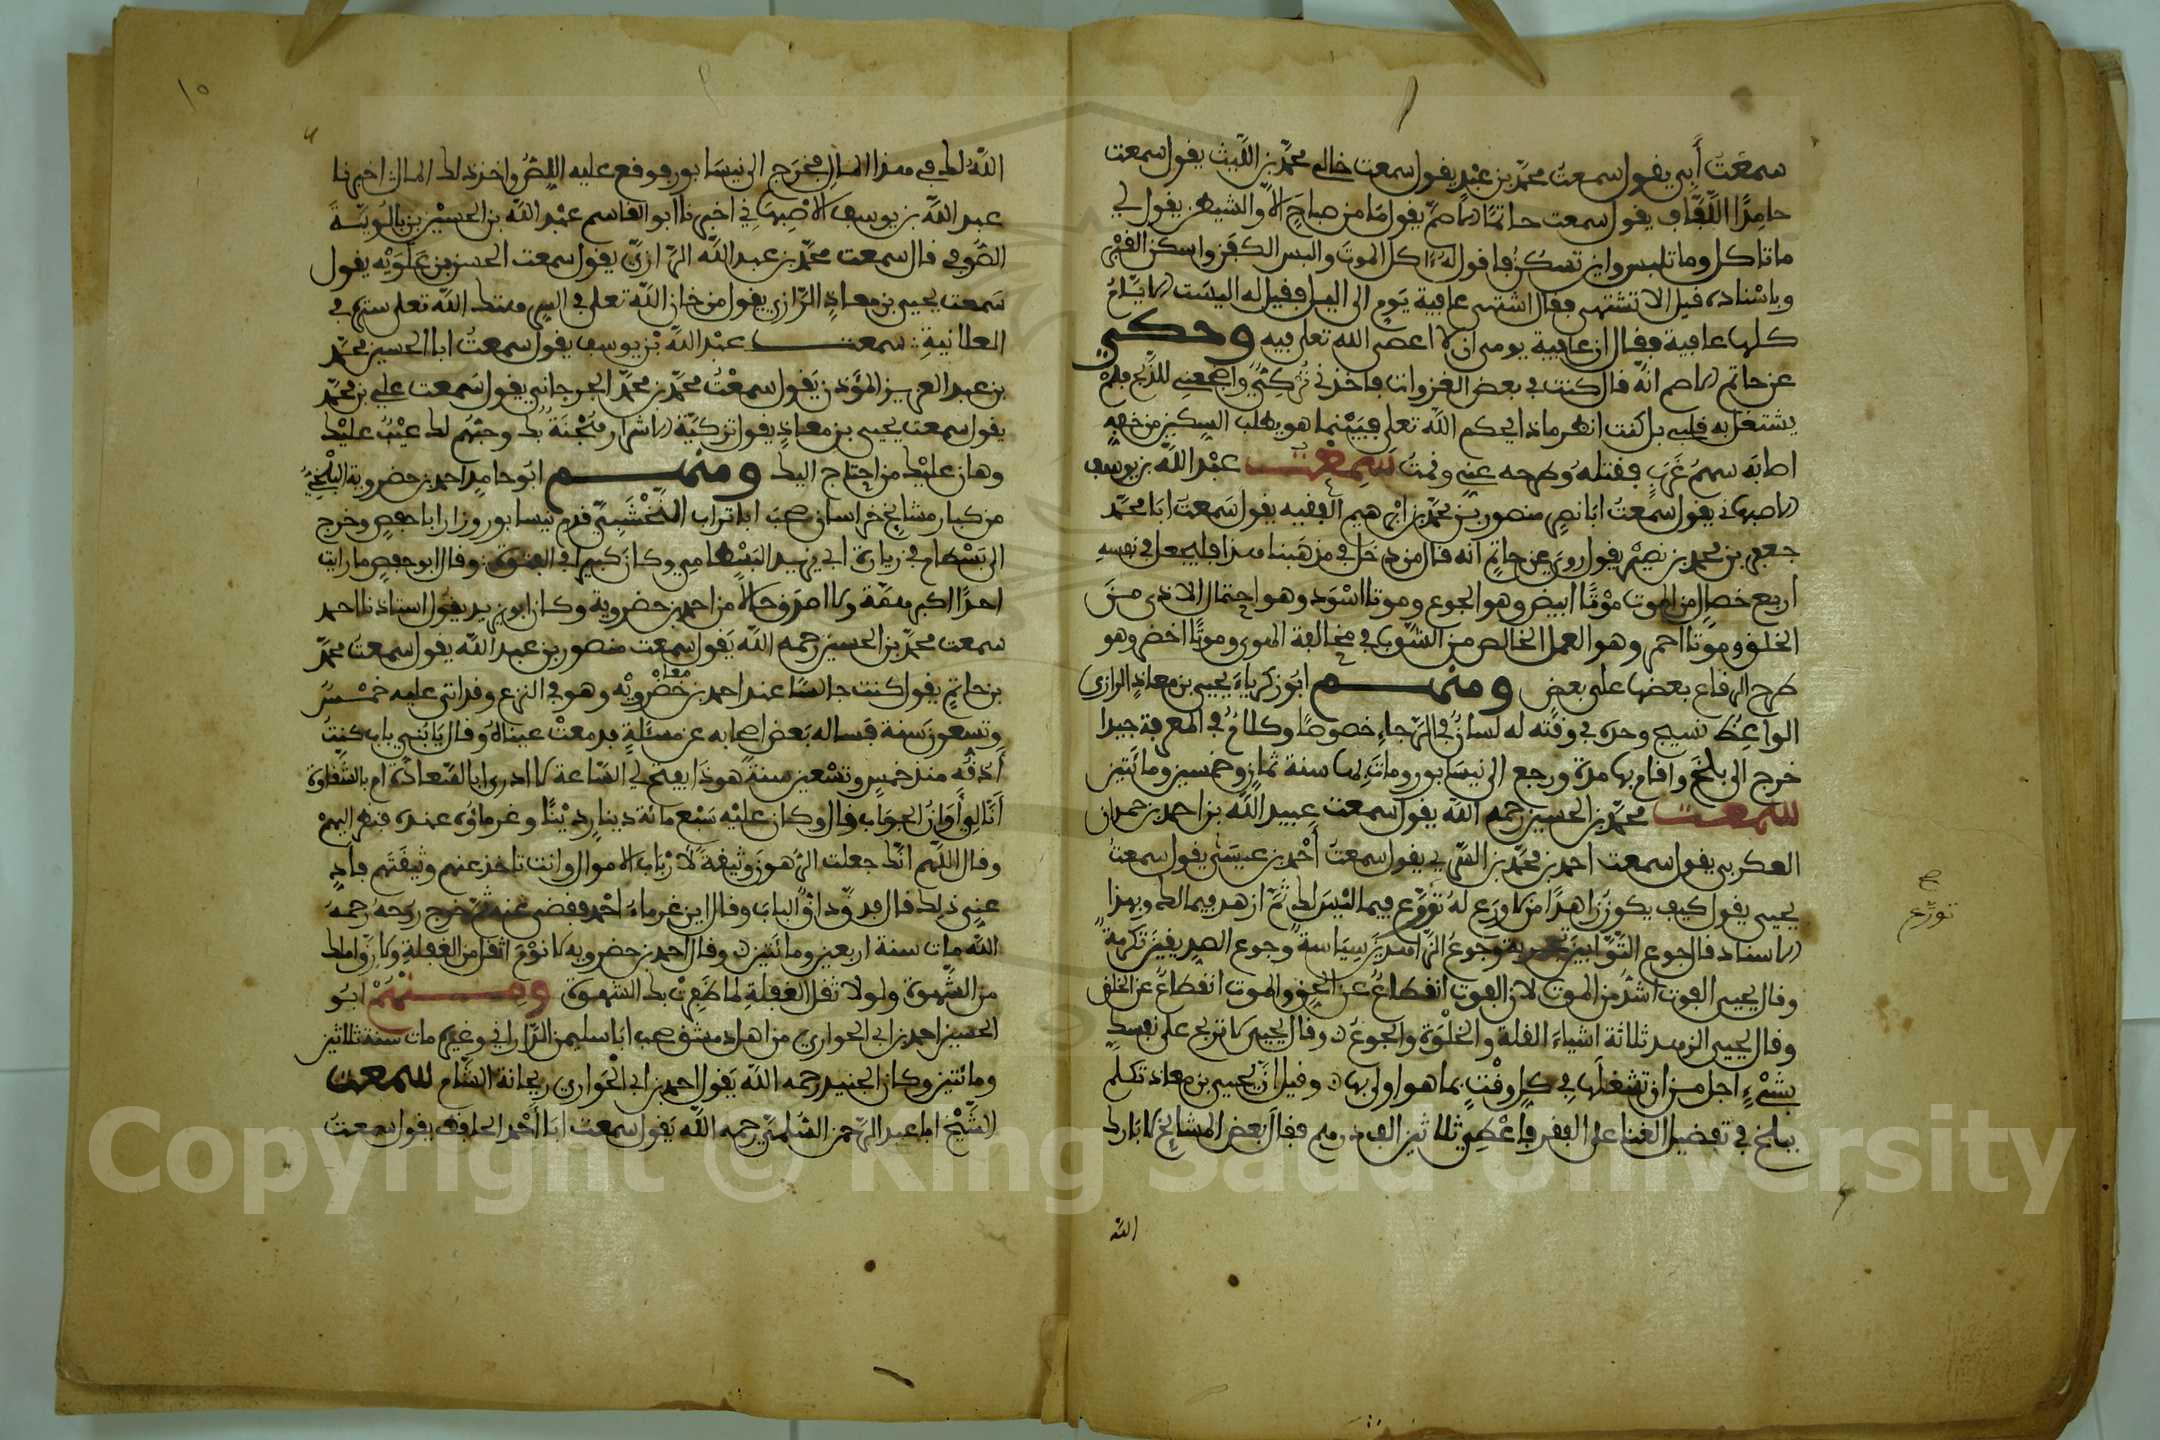 سمعت أبي يقول سمعت محمد بن عبد يقول سمعت خالي محمد بن الليث يقول سمعت
حامدا اللفاف يقول سمعت حاتما الاصم يقول ما من صباح الا والشيطان يقول لي
ما تاكل وما تلبس واين تسكن فاقول له اكل الموت والبس الكفن واسكن القبر
وباسناده قيل الا تشتهي فقال اشتهي عافية يوم الى الليل فقيل له اليست الايام
كلها عافية فقال ان عافية يومي ان لا اعصي الله تعلى فيه وحكي
عن حاتم الاصم انه قال كنت في بعض الغزوات فاخذني تركي واضجعني للذبح فلم
يشتغل به قلبي بل كنت انظر ماذا يحكم الله تعلى فبينما هو يطلب السكين من خفه
اصابه سهم غرب فقتله وطرحه عني وقمت سمعت عبد الله بن يوسف
الاصبهاني يقول سمعت ابا نصر منصور بن محمد بن ابراهيم الفقيه يقول سمعت ابا محمد
جعفر بن محمد بن نصير يقول روي عن حاتم انه قال من دخل في مذهبنا هذا فليجعل في نفسه
اربع خصال من الموت موتا ابيض وهو الجوع وموتا اسود وهو احتمال الاذى من
الخلق وموتا احمر وهو العمل الخالص من الشوب في مخالفة الهوى وموتا اخضر وهو
طرح الرقاع بعضها على بعض ومنهم ابو زكرياء يحيى بن معاذ الرازي
الواعظ نسيج وحده في وقته له لسان في الرجاء خصوصا وكلام في المعرفة جيدا
خرج الى بلخ واقام بها مدة ورجع الى نيسابور ومات بها سنة ثمان وخمسين ومائتين
سمعت محمد بن الحسين رحمه الله يقول سمعت عبيد الله بن احمد بن حمدان
العكبري يقول سمعت احمد بن محمد بن السري يقول سمعت أحمد بن عيسى يقول سمعت
يحيى يقول كيف يكون زاهدا من لا ورع له تورع فيما ليس لك ثم ازهد فيما لك وبهذا
الاسناد قال جوع التوابين تجربة وجوع الزاهدين سياسة وجوع الصديقين تكرمة
وقال يحيى الفوت أشد من الموت لان الفوت انقطاع عن الحق والموت انقطاع عن الخلق
وقال يحيى الزهد ثلاثة اشياء القلة والخلوة والجوع وقال يحيى لا تربح على نفسك
بشيء اجل من ان تشغلها في كل وقت بما هو اولى بها وقيل ان يحيى بن معاذ تكلم
ببلخ في تفضيل الغنا على الفقر فاعطي ثلاثين الف درهم فقال بعض المشايخ لا بارك
الله
تورع
١٠
الله لك في هذا المال فخرج الى نيسابور فوقع عليه اللص واخذ ذلك المال اخبرنا
عبد الله بن يوسف الاصبهاني اخبرنا ابو القاسم عبد الله بن الحسين بن بالويه
الصوفي قال سمعت محمد بن عبد الله الرازي يقول سمعت الحسن بن علويه يقول
سمعت يحيى بن معاذ الرازي يقول من خان الله تعلى في السر هتك الله تعلى ستره في
العلانية سمعت عبد الله بن يوسف يقول سمعت ابا الحسين محمد
بن عبد العزيز المؤذن يقول سمعت محمد بن محمد الجرجاني يقول سمعت علي بن محمد
يقول سمعت يحيى بن معاذ يقول تزكية الاشرار هجنة بك وحبهم لك عيب عليك
وهان عليك من احتاج اليك ومنهم ابو حامد احمد بن خضروية البلخي
من كبار مشايخ خراسان صحب ابا تراب النخشبي قدم نيسابور وزار ابا حفص وخرج
الى بسطام في زيارة ابي يزيد البسطامي وكان كبيرا في الفتوة وقال ابو حفص ما رايت
احدا اكبر همة ولا اصدق حالا من احمد بن خضروية وكان ابو يزيد يقول استاذنا احمد
سمعت محمد بن الحسين رحمه الله يقول سمعت منصور بن عبد الله يقول سمعت محمد
بن حاتم يقول كنت جالسا عند احمد بن خضرويه وهو في النزع وقد اتى عليه خمس
وتسعون سنة فساله بعض اصحابه عن مسئلة فدمعت عيناه وقال يا بني باب كنت
أدقه منذ خمس وتسعين سنة هوذا يفتح لي الساعة لا ادري ابالسعادة ام بالشقاوة
أنا لي أوان الجواب قال وكان عليه سبع مائة دينار دينا وغرماؤه عنده فنظر اليهم
وقال اللهم انك جعلت الرهون وثيقة لارباب الاموال وانت تاخذ عنهم وثيقتهم فاد
عني ذلك قال فدق داق الباب وقال اين غرماء احمد فقضى عنه ثم خرج روحه رحمه
الله مات سنة اربعين ومائتين وقال احمد بن خضرويه لا نوم اثقل من الغفلة ولا رق املك
من الشهوة ولولا ثقل الغفلة لما ظفرت بك الشهوة ومنهم ابو
الحسين احمد بن ابي الحواري من اهل دمشق صحب ابا سليمن الداراني وغيره مات سنة ثلاثين
ومائتين وكان الجنيد رحمه الله يقول احمد بن ابي الحواري ريحانة الشام سمعت
الشيخ ابا عبد الرحمن السلمي رحمه الله يقول سمعت ابا أحمد الحافظ يقول سمعت
Copyright © King Saud University